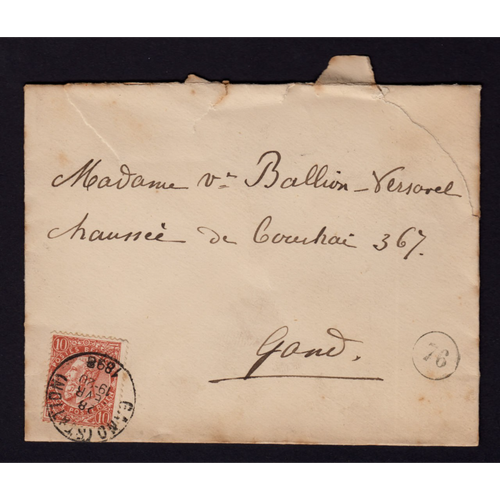 Madame Vᵉ Ballion-Versavel
chaussée de Courtrai 367.
Gand.
76
10
10
GAND (STATION)
1898